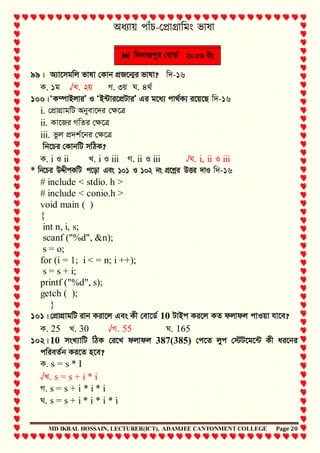 অধ্যায় পাঁচ-প্রোগ্রামিং ভাষা
⏭ দিনাজপুর বোর্ড ২০১৬ ইং
৯৯। অ্যাসেমলি ভাষা কোন প্রজন্মের ভাষা? দি-১৬
ক. ১ম √খ. ২য় গ. ৩য় ঘ. ৪র্থ
১০০।'কম্পাইলার' ও 'ইন্টারপ্রেটার' এর মধ্যে পার্থক্য রয়েছে দি-১৬
i. প্রোগ্রামটি অনুবাদের ক্ষেত্রে
ii. কাজের গতির ক্ষেত্রে
iii. ভুল প্রদর্শনের ক্ষেত্রে
নিচের কোনটি সঠিক?
ক. i ও ii খ. i ও iii গ. ii ও iii √ঘ. i, ii ও iii
* নিচের উদ্দীপকটি পড়ো এবং ১০১ ও ১০২ নং প্রশ্নের উত্তর দাও দি-১৬
# include < stdio. h >
# include < conio.h >
void main ( )
{
int n, i, s;
scanf ("%d", &n);
s = o;
for (i = 1; i < = n; i ++);
s = s + i;
printf ("%d", s);
getch ( );
}
১০১।প্রোগ্রামটি রান করালে এবং কী বোর্ডে 10 টাইপ করলে কত ফলাফল পাওয়া যাবে?
ক. 25 খ. 30 √গ. 55 ঘ. 165
১০২।10 সংখ্যাটি ঠিক রেখে ফলাফল 387(385) পেতে লুপ স্টেটমেন্টে কী ধরনের
পরিবর্তন করতে হবে?
ক. s = s * I
√খ. s = s + i * i
গ. s = s + i * i * i
ঘ. s = s + i * i * i * i
MD IKBAL HOSSAIN, LECTURER(ICT), ADAMJEE CANTONMENT COLLEGE Page 20